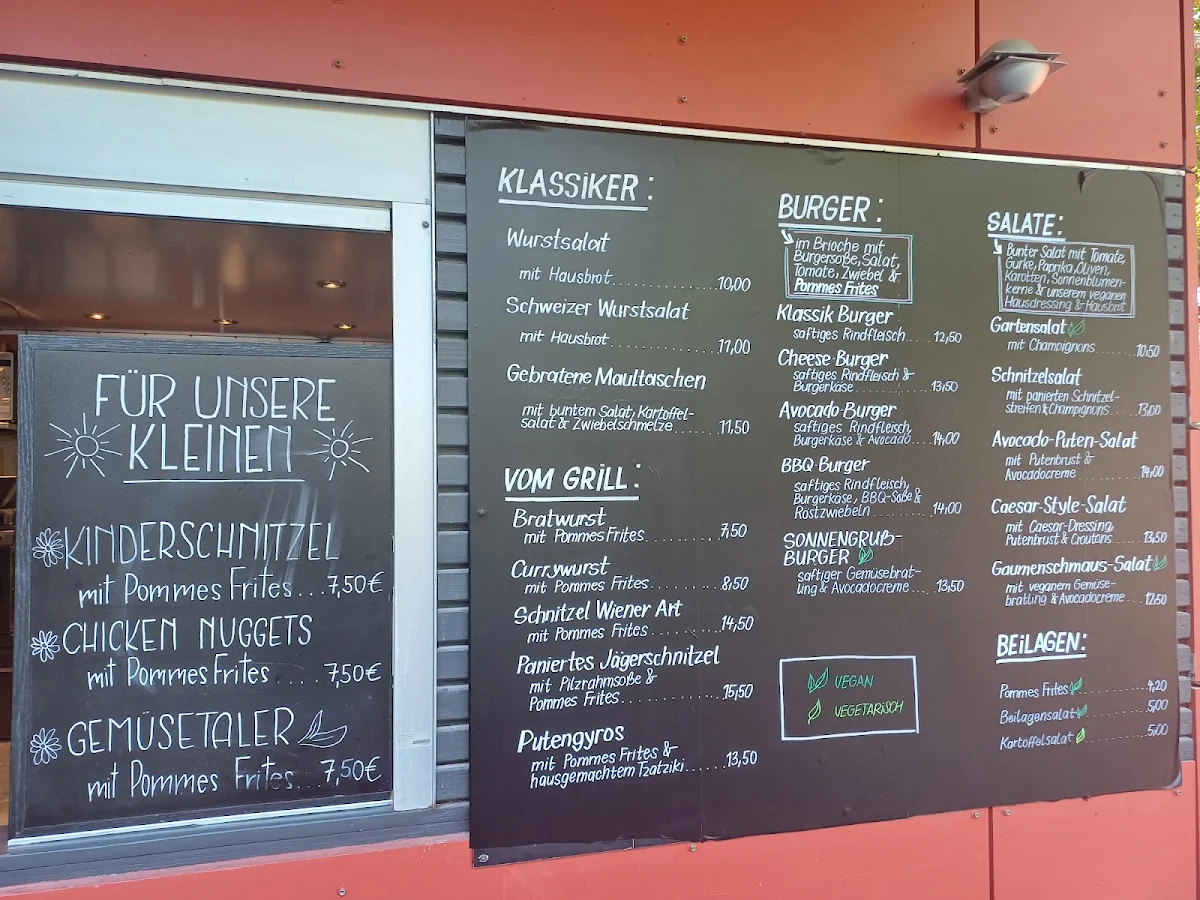 FÜR UNSERE
KLEINEN
KINDERSCHNITZEL
mit Pommes Frites...7,50€
CHICKEN NUGGETS
mit Pommes Frites....7,50€
GEMÜSETALER
mit Pommes Frites...7,50€
KLASSIKER:
Wurstsalat
mit Hausbrot....................10,00
Schweizer Wurstsalat
mit Hausbrot....................11,00
Gebratene Maultaschen
mit buntem Salat, Kartoffel-
salat & Zwiebelschmelze........11,50
VOM GRILL:
Bratwurst
mit Pommes Frites............7,50
Currywurst
mit Pommes Frites............8,50
Schnitzel Wiener Art
mit Pommes Frites............14,50
Paniertes Jägerschnitzel
mit Pilzrahmsoße &
Pommes Frites................15,50
Putengyros
mit Pommes Frites &
hausgemachtem Tzatziki......13,50
BURGER:
im Brioche mit
Burgersoße, Salat,
Tomate, Zwiebel &
Pommes Frites
Klassik Burger
saftiges Rindfleisch.....12,50
Cheese-Burger
saftiges Rindfleisch &
Burgerkäse...............13,50
Avocado-Burger
saftiges Rindfleisch,
Burgerkäse & Avocado....14,00
BBQ-Burger
saftiges Rindfleisch,
Burgerkäse, BBQ-Soße &
Röstzwiebeln.............14,00
SONNENGRUß-
BURGER
saftiger Gemüsebrat-
ling & Avocadocreme....13,50
VEGAN
VEGETARISCH
SALATE:
Bunter Salat mit Tomate,
Gurke, Paprika, Oliven,
Karotten, Sonnenblumen-
kerne & unserem veganen
Hausdressing & Hausbrot
Gartensalat
mit Champignons.........10,50
Schnitzelsalat
mit panierten Schnitzel-
streifen & Champignons.....13,00
Avocado-Puten-Salat
mit Putenbrust &
Avocadocreme............14,00
Caesar-Style-Salat
mit Caesar-Dressing,
Putenbrust & Croutons.....13,50
Gaumenschmaus-Salat
mit veganem Gemüse-
bratling & Avocadocreme...12,50
BEILAGEN:
Pommes Frites...........4,20
Beilagensalat...........5,00
Kartoffelsalat..........5,00